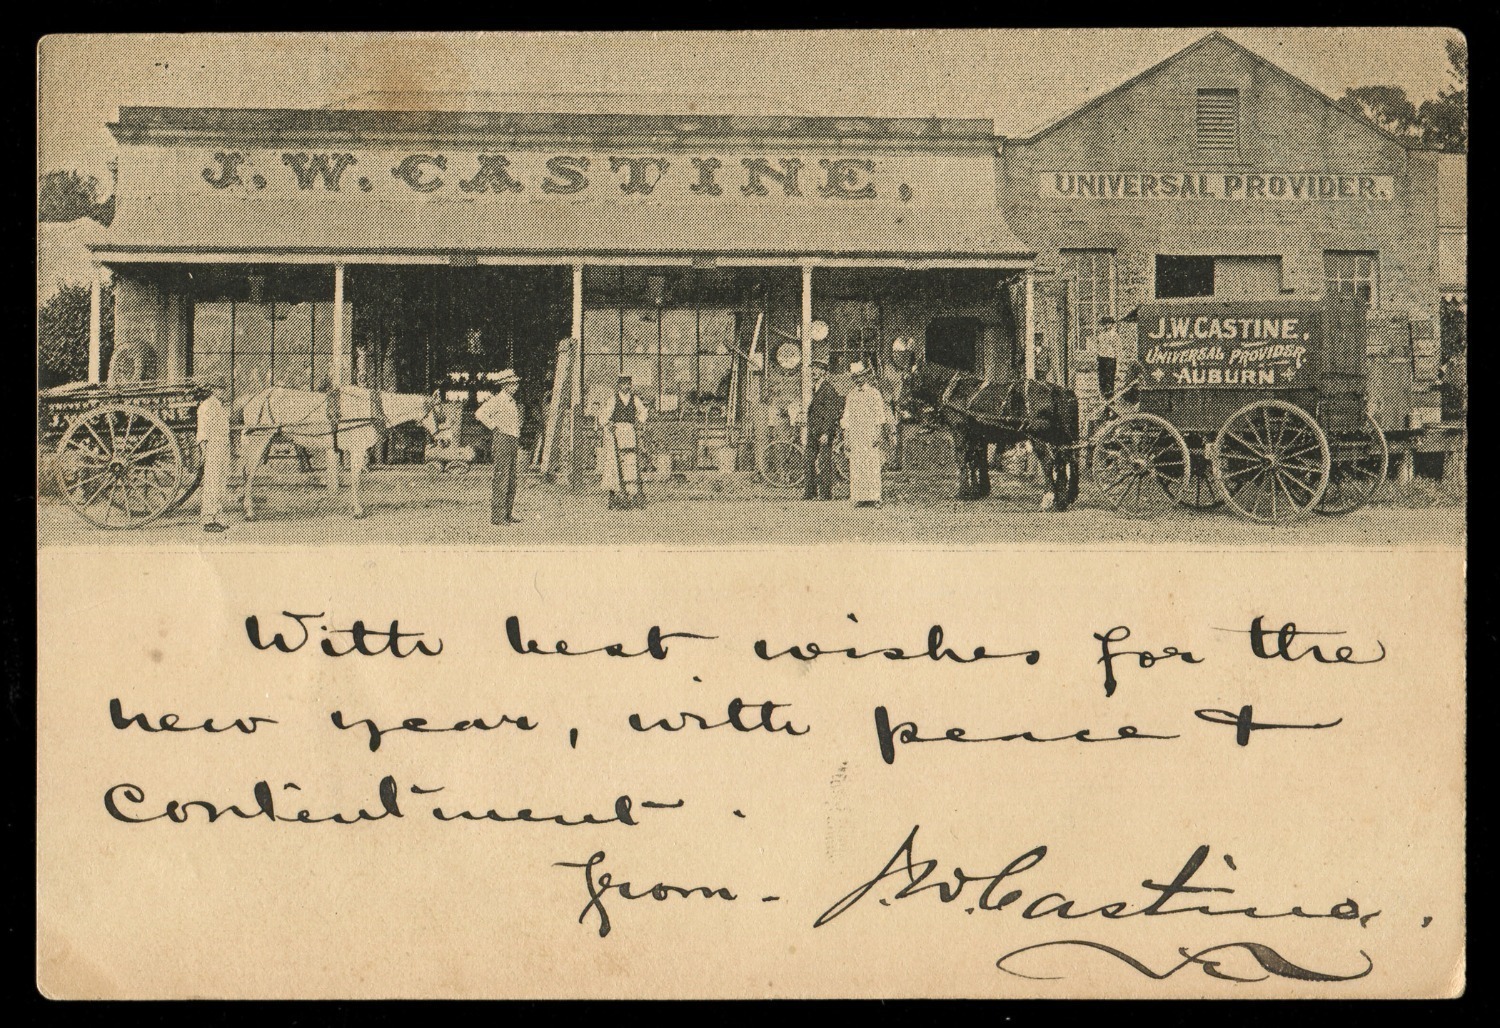 J. W. CASTINE.
UNIVERSAL PROVIDER.
J.W. CASTINE.
UNIVERSAL PROVIDER.
AUBURN
With best wishes for the
new year, with peace &
Contentment.
from - J.W. Castine.